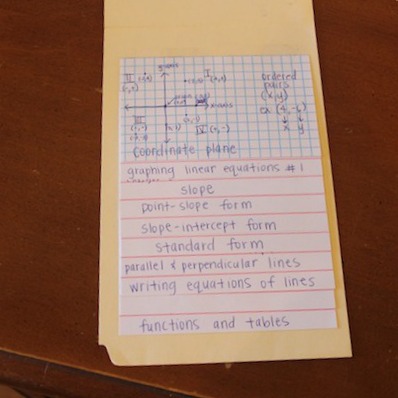 II
I
III
IV (+, -)
ordered
pairs
(x, y)
ex (4, -6)
x y
coordinate plane
graphing linear equations #1
slope
point-slope form
slope-intercept form
standard form
parallel & perpendicular lines
writing equations of lines
functions and tables